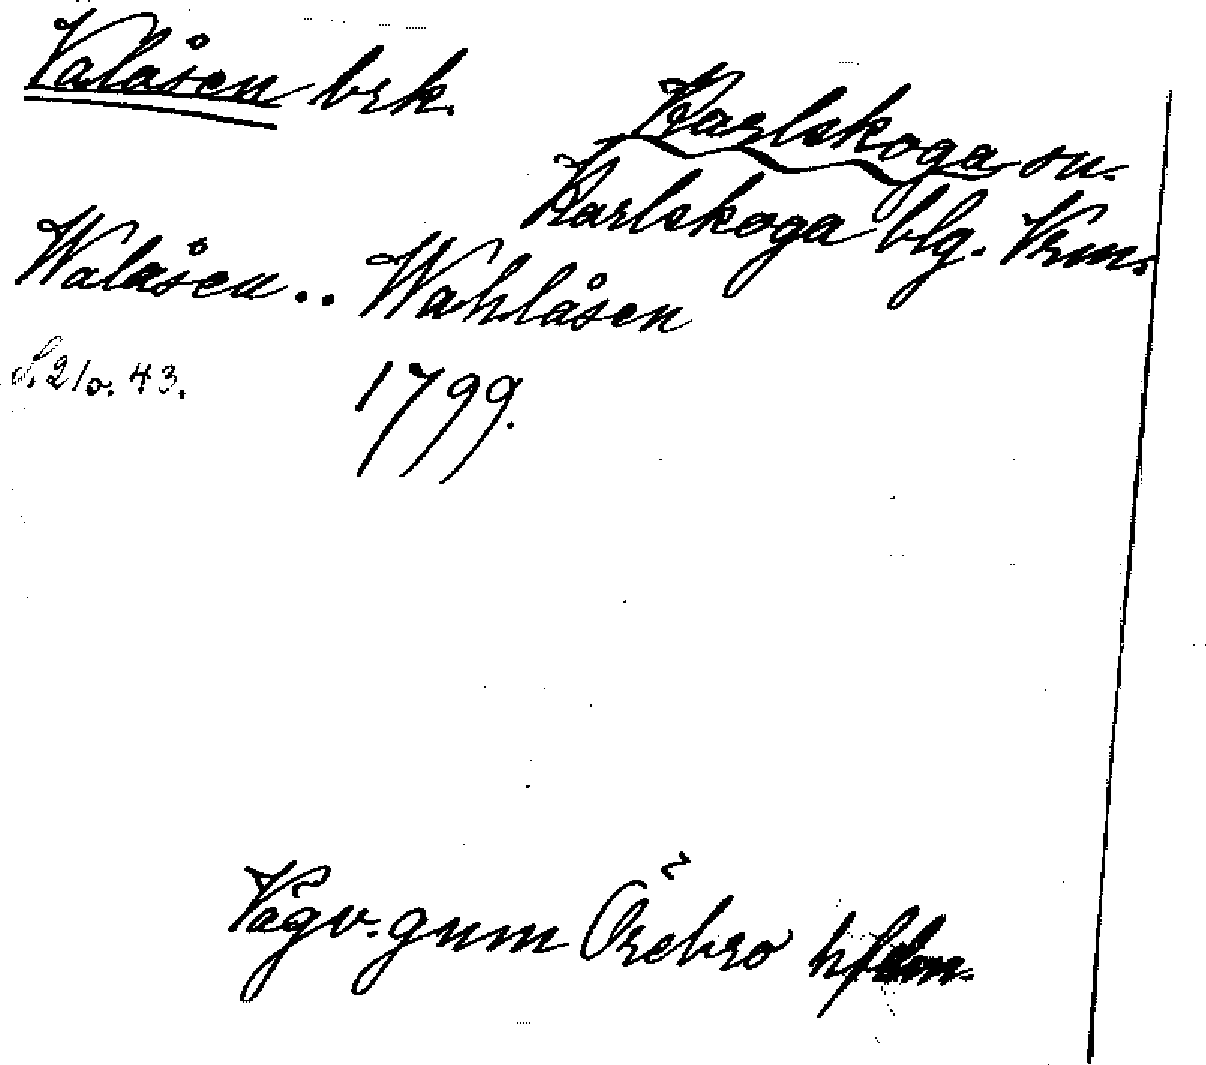 Valåsen brk.
Karlskoga sn.
Karlskoga blg. Vrm.
Walåsen.. Wahlåsen
S. 210. 43. 1799.
Vägv. gnm Örebro